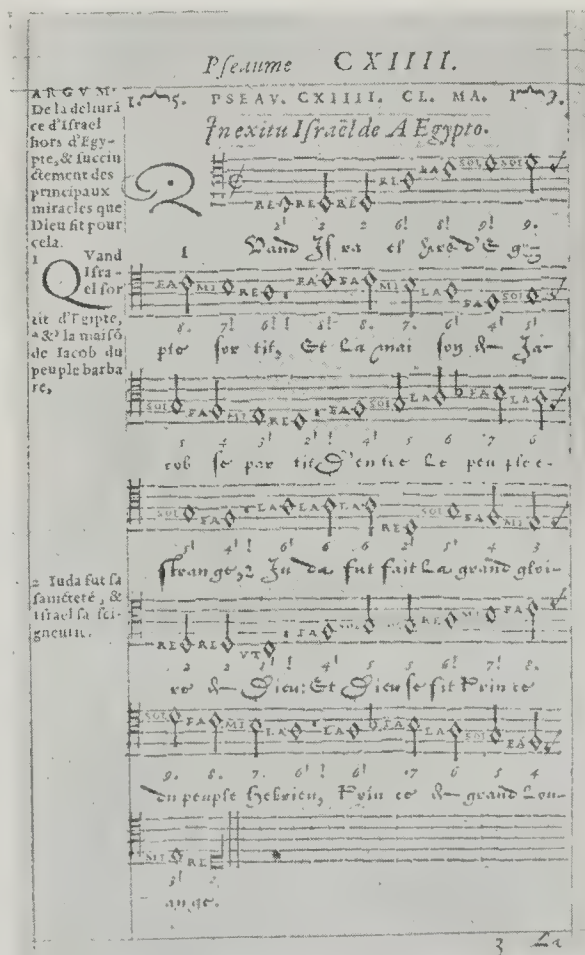 Pseaume CXIIII.
ARGVM.
De la deliurã
ce d'Israel
hors d'Egy-
pte, & succin
ctement des
principaux
miracles que
Dieu fit pour
cela.
1 Qvand
Isra-
el sor
tit d'Egipte,
& la maisõ
de Iacob du
peuple barba
re,
2 Iuda fut sa
saincteté, &
Israel sa sei-
gneurie.
1. 5. PSEAV. CXIIII. CL. MA. 1 9.
In exitu Israël de AEgypto.
RE RE RE RE LA SOL SOL
2! 2 2 6! 8! 9! 9.
1 Quand Is ra el hors d'E gy-
FA MI RE FA FA MI LA FA SOL
8. 7! 6! ! 8! 8. 7. 6! 4! 5!
pte sor tit, Et La mai son de Ja-
SOL FA MI RE FA SOL LA FA LA
5 4 3! 2! ! 4! 5 6 7 6
cob se par tit D'entre Le peu ple e-
SOL FA LA LA LA RE SOL FA MI
5! 4! ! 6! 6 6 2! 5! 4 3
strange, 2 Ju da fut fait La grand gloi-
RE RE VT FA SOL SOL RE MI FA
2 2 1! ! 4! 5 5 6! 7! 8.
re de Dieu: Et Dieu se fit Prin ce
SOL FA MI LA LA FA LA SOL FA
9. 8. 7. 6! ! 6! 7 6 5 4
du peuple Hebrieu, Prin ce de grand Lou-
MI RE
3! 2.
ange.
3 La